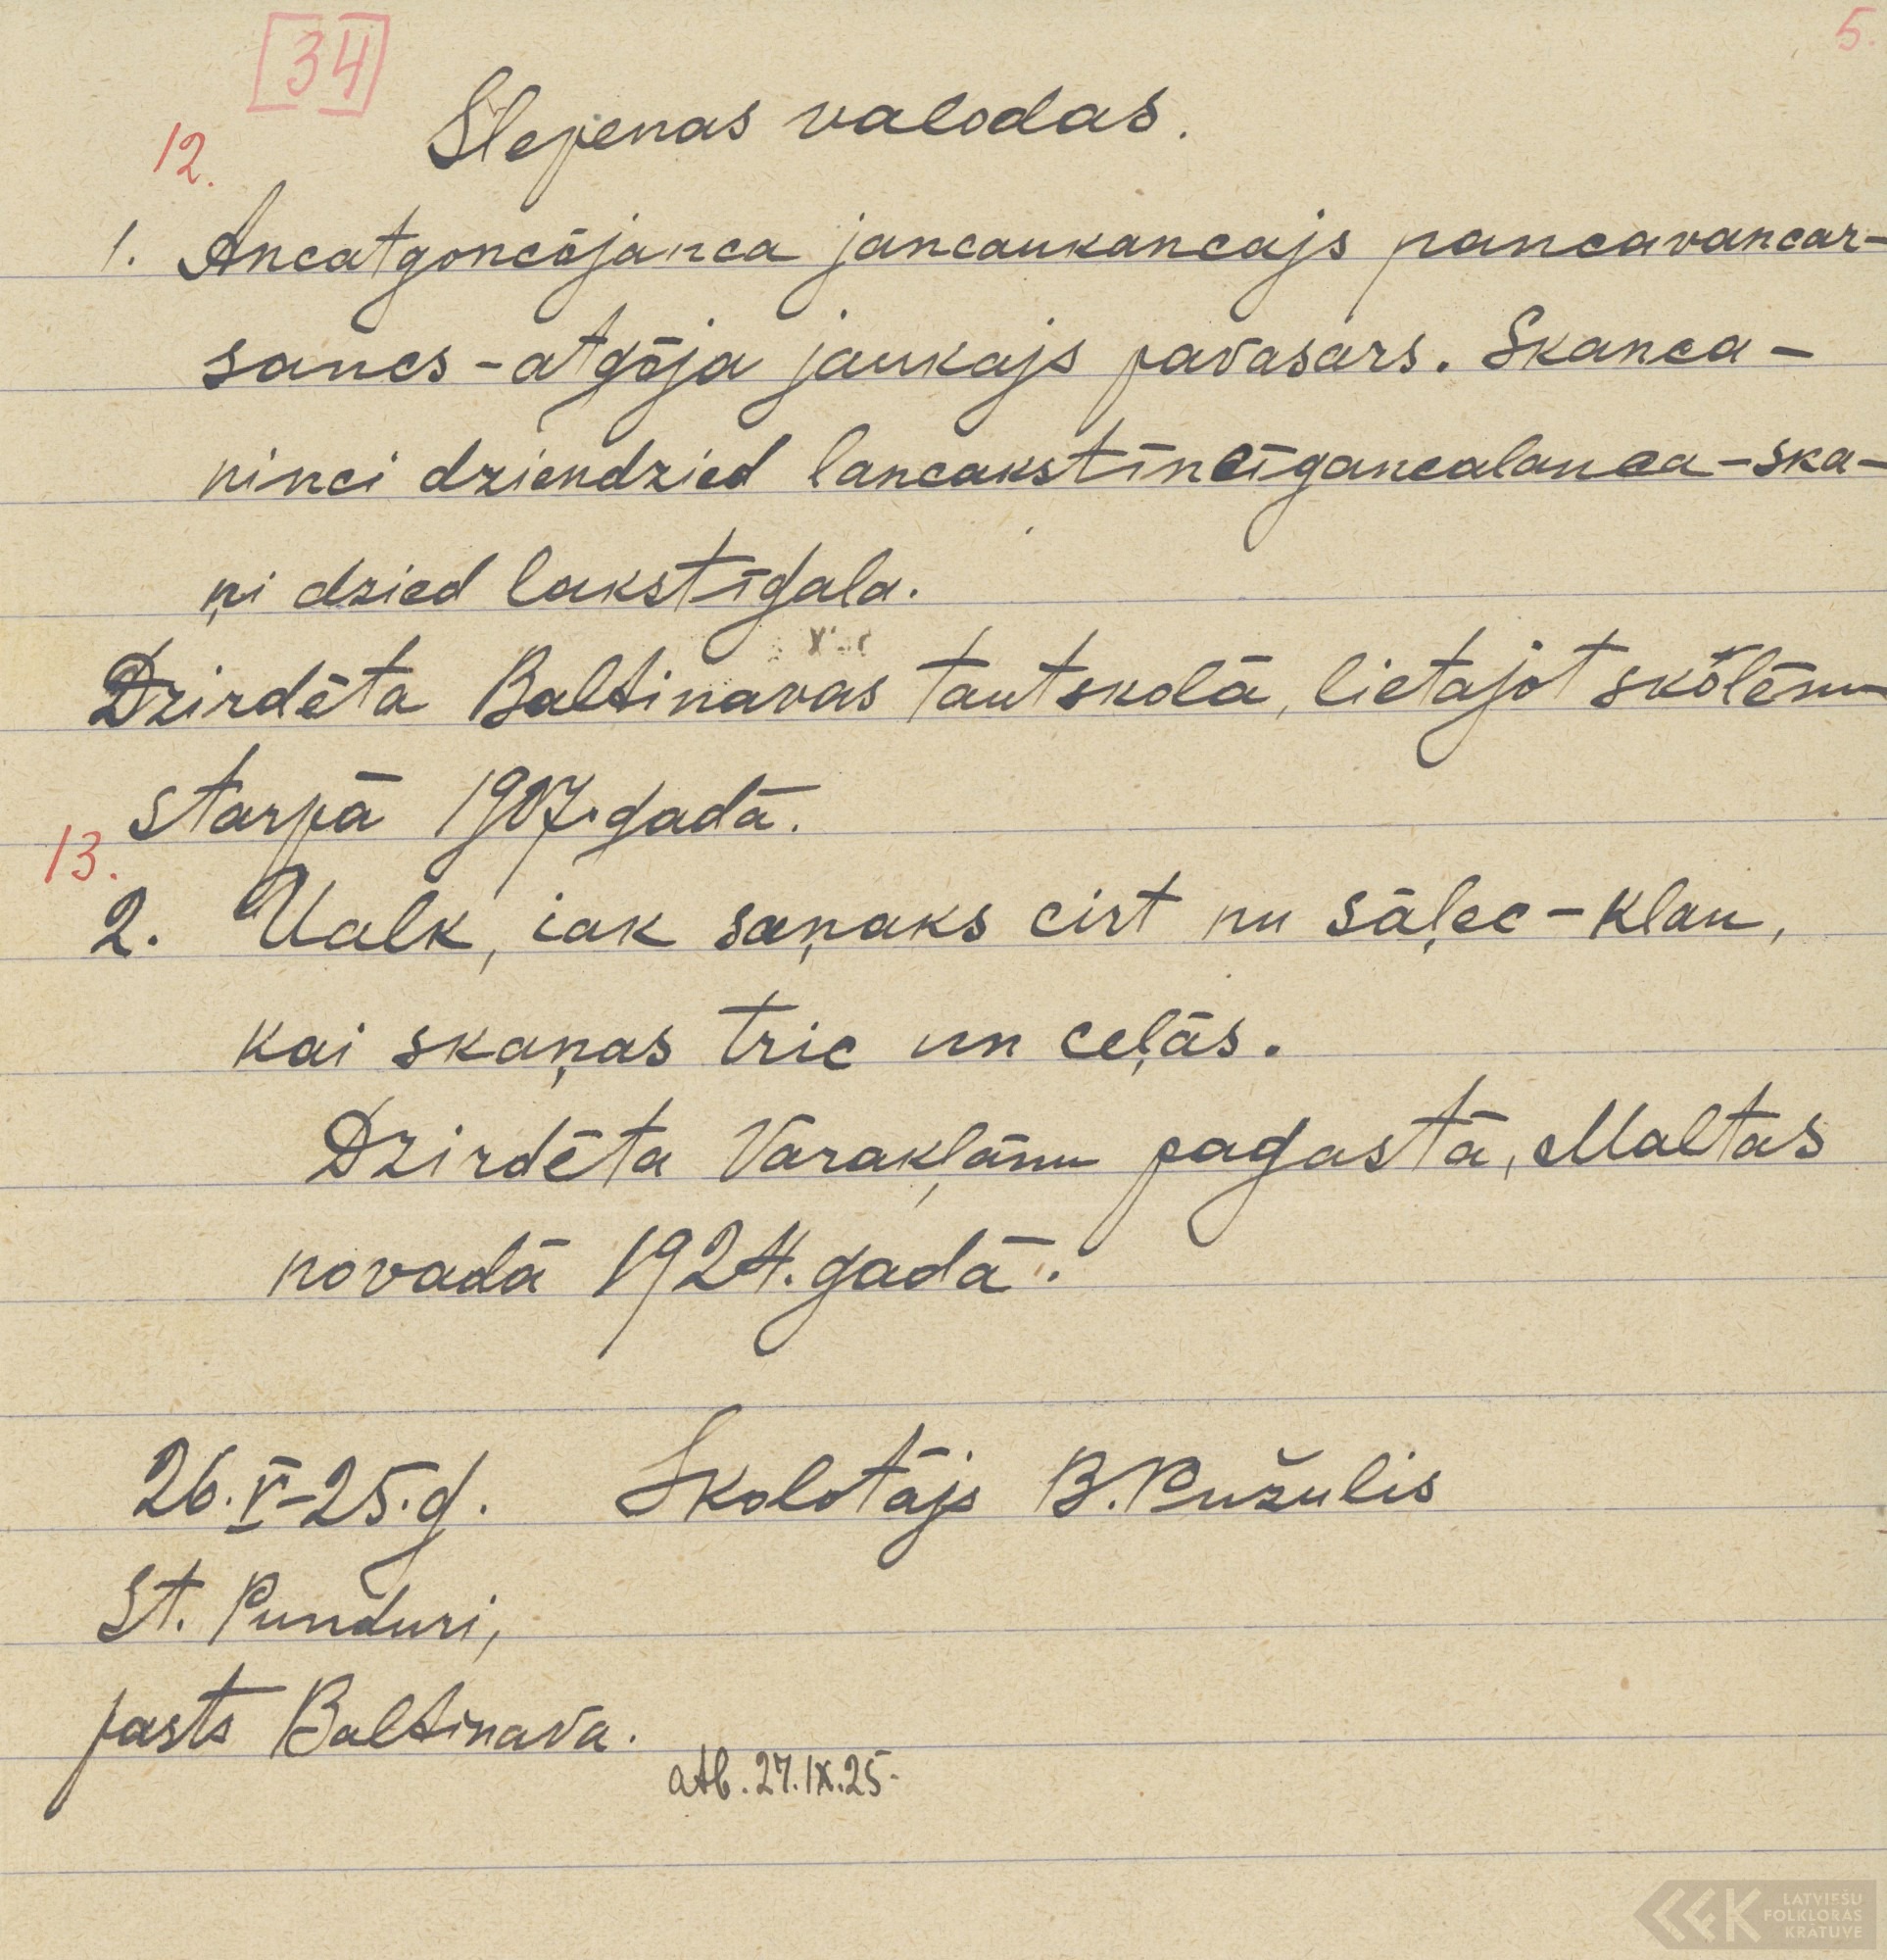 [34]
5.
Slepenas valodas.
12.
1. Ancatgoncōjanca jancaukancajs pancavancar-
sancs - atgōja jaukajs pavasars. Skanca-
ninci dziendzied lancakstīncīgancalanca - ska-
ņi dzied lakstīgala.
Dzirdēta Baltinavas tautskolā, lietajot skōlēnu
starpā 1907. gadā.
13.
2. Ualk, iak saņaks cirt nu sāļec - Klau,
kai skaņas tric un ceļās.
Dzirdēta Varakļānu pagastā, Maltas
novadā 1924. gadā.
26. V - 25. g. Skolotājs B. Pužulis
St. Punduri,
pasts Baltinava.
atb. 27. IX. 25.
LATVIEŠU
FOLKLORAS
KRĀTUVE